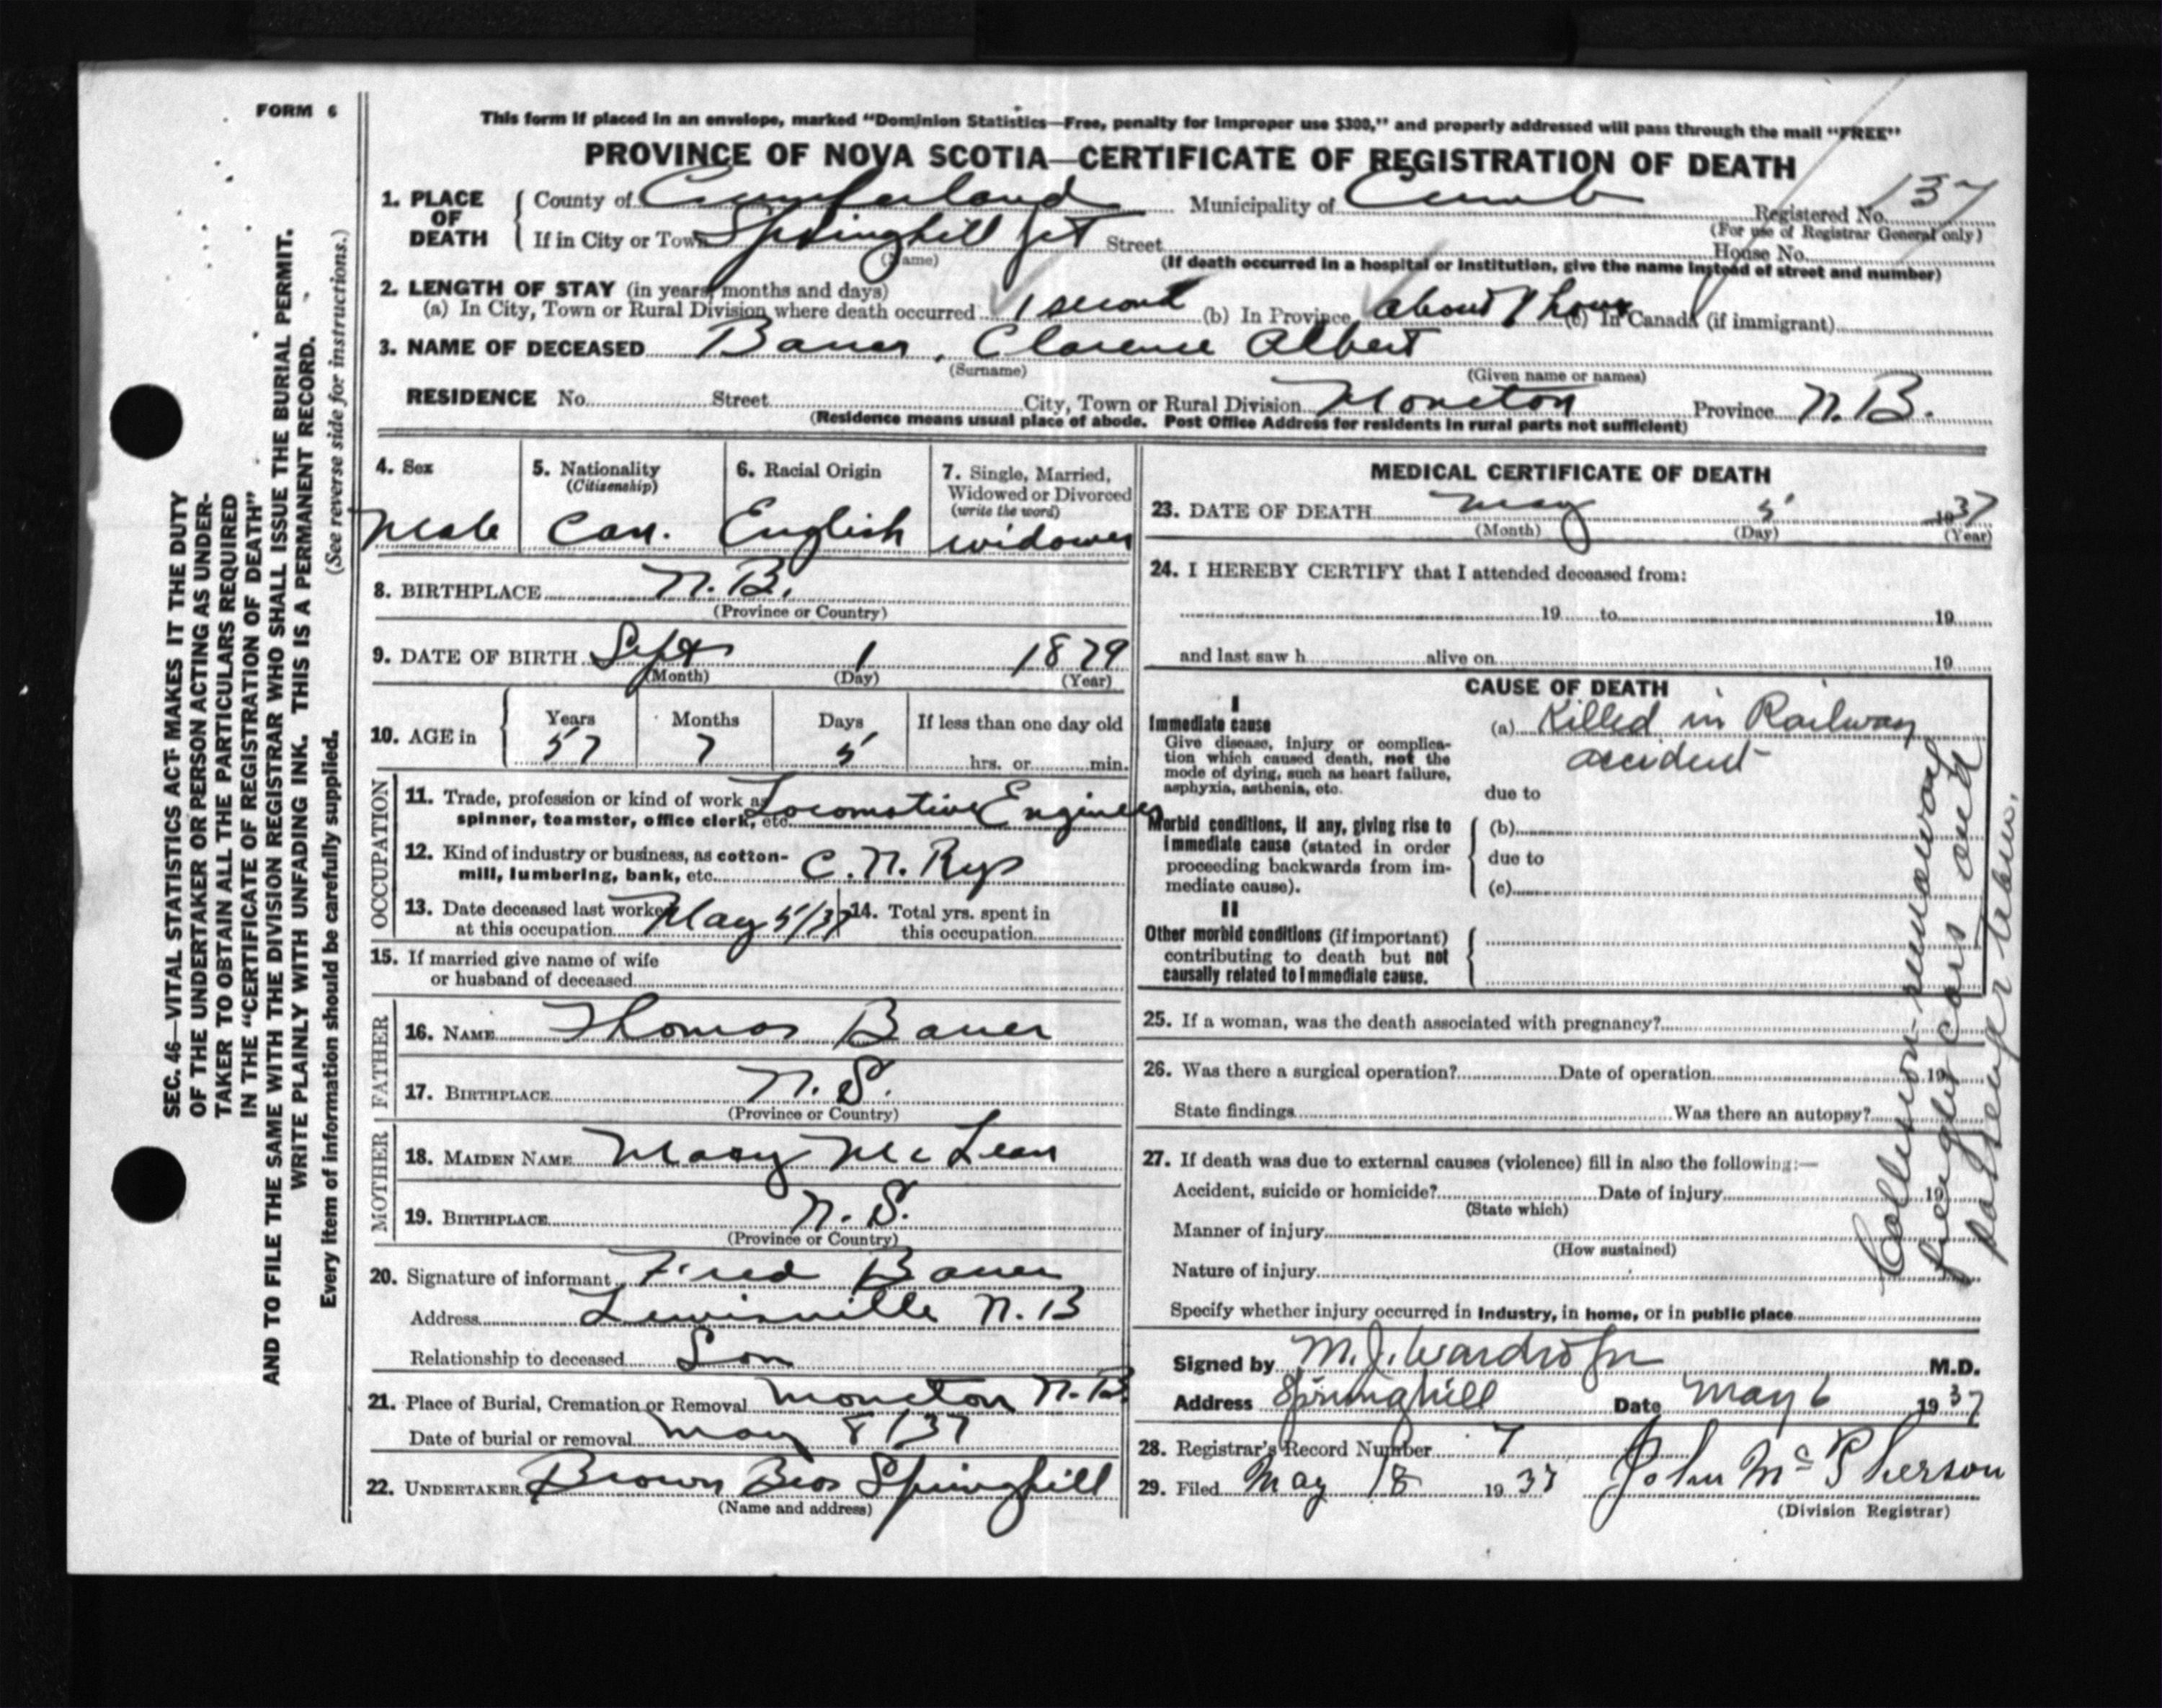 FORM 6
This form if placed in an envelope, marked "Dominion Statistics—Free, penalty for improper use $300," and properly addressed will pass through the mail "FREE"
PROVINCE OF NOVA SCOTIA—CERTIFICATE OF REGISTRATION OF DEATH
1. PLACE OF DEATH { County of Cumberland Municipality of Cumb Registered No. 137
(For use of Registrar General only)
If in City or Town Springhill Jct Street House No.
(Name) (If death occurred in a hospital or institution, give the name instead of street and number)
2. LENGTH OF STAY (in years, months and days)
(a) In City, Town or Rural Division where death occurred 1 second (b) In Province about 1 hour (c) In Canada (if immigrant)
3. NAME OF DECEASED Bauer, Clarence Albert
(Surname) (Given name or names)
RESIDENCE No. Street City, Town or Rural Division Moncton Province N.B.
(Residence means usual place of abode. Post Office Address for residents in rural parts not sufficient)
4. Sex 5. Nationality (Citizenship) 6. Racial Origin 7. Single, Married, Widowed or Divorced (write the word)
Male Can. English widower
8. BIRTHPLACE N.B.
(Province or Country)
9. DATE OF BIRTH Sept 1 1879
(Month) (Day) (Year)
10. AGE in { Years Months Days If less than one day old
57 7 5 hrs. or min.
OCCUPATION
11. Trade, profession or kind of work as Locomotive Engineer
spinner, teamster, office clerk, etc.
12. Kind of industry or business, as cotton-
mill, lumbering, bank, etc. C.N. Rys
13. Date deceased last worked
at this occupation May 5/37
14. Total yrs. spent in
this occupation
15. If married give name of wife
or husband of deceased
FATHER
16. NAME Thomas Bauer
17. BIRTHPLACE N.S.
(Province or Country)
MOTHER
18. MAIDEN NAME Mary McLean
19. BIRTHPLACE N.S.
(Province or Country)
20. Signature of informant Fred Bauer
Address Lewisville N.B
Relationship to deceased Son
21. Place of Burial, Cremation or Removal Moncton N.B.
Date of burial or removal May 8/37
22. UNDERTAKER Brown Bros Springhill
(Name and address)
MEDICAL CERTIFICATE OF DEATH
23. DATE OF DEATH May 5 1937
(Month) (Day) (Year)
24. I HEREBY CERTIFY that I attended deceased from:
19 to 19
and last saw h alive on 19
CAUSE OF DEATH
I
Immediate cause (a) Killed in Railway
accident
Give disease, injury or complica-
tion which caused death, not the
mode of dying, such as heart failure,
asphyxia, asthenia, etc.
due to
Morbid conditions, if any, giving rise to
immediate cause (stated in order
proceeding backwards from im-
mediate cause).
(b)
due to
(c)
II
Other morbid conditions (if important)
contributing to death but not
causally related to immediate cause.
25. If a woman, was the death associated with pregnancy?
26. Was there a surgical operation? Date of operation 19
State findings Was there an autopsy?
27. If death was due to external causes (violence) fill in also the following:—
Accident, suicide or homicide? Date of injury 19
(State which)
Manner of injury
(How sustained)
Nature of injury
Specify whether injury occurred in industry, in home, or in public place
Signed by M.J. Wardrope M.D.
Address Springhill Date May 6 1937
28. Registrar's Record Number 7
29. Filed May 18 1937 John McPherson
(Division Registrar)
Collision - runaway
freight cars and
passenger train.
SEC. 46—VITAL STATISTICS ACT MAKES IT THE DUTY
OF THE UNDERTAKER OR PERSON ACTING AS UNDER-
TAKER TO OBTAIN ALL THE PARTICULARS REQUIRED
IN THE "CERTIFICATE OF REGISTRATION OF DEATH"
AND TO FILE THE SAME WITH THE DIVISION REGISTRAR WHO SHALL ISSUE THE BURIAL PERMIT.
WRITE PLAINLY WITH UNFADING INK. THIS IS A PERMANENT RECORD.
Every item of information should be carefully supplied. (See reverse side for instructions.)